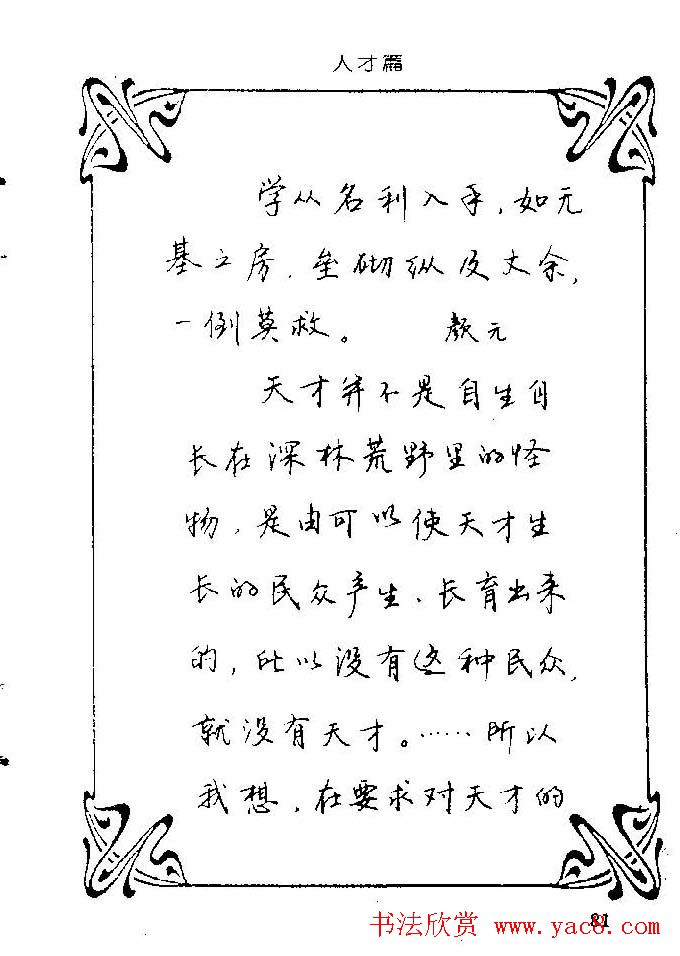 人才篇
学从名利入手，如无
基之房，垒砌纵及丈余，
一倒莫救。 颜元
天才并不是自生自
长在深林荒野里的怪
物，是由可以使天才生
长的民众产生、长育出来
的，所以没有这种民众，
就没有天才。……所以
我想，在要求对天才的
81
书法欣赏 www.yac8.com